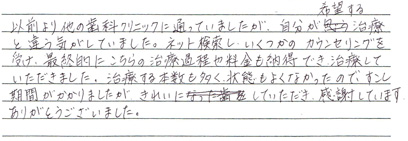 希望する
以前より他の歯科クリニックに通っていましたが、自分が治療
と違う気がしていました。ネット検索し、いくつかの カウンセリングを
受け、最終的に こちらの治療過程や料金も納得でき治療して
いただきました。治療する本数も多く、状態もよくなかったので すこし
期間がかかりましたが きれいにしていただき、感謝しています。
ありがとうございました。